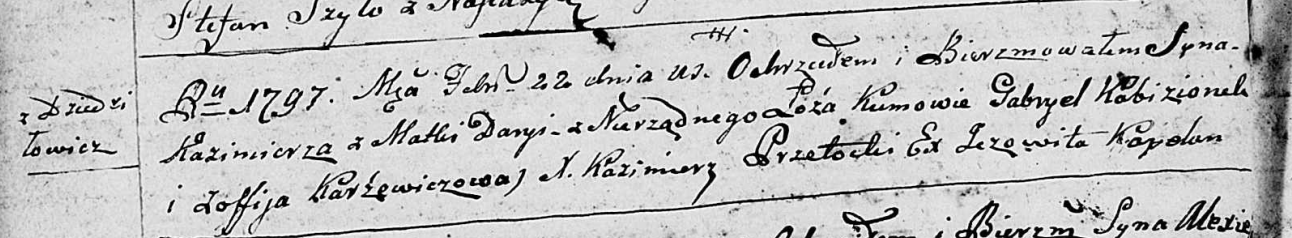 Stefan Szyło z
z Dziedzi
łowicz
Ru 1797. Mca Febr. 22 dnia us. Ochrzciłem i Bierzmowałem Syna-
Kazimierza z Matki Daryi z Nierządnego Łoża Kumowie Gabryel Kobizionek
i Zoffija Karżewiczowa) X. Kazimierz Przełocki Ex Jezowita Kapelan
i Bierzm Syna Alexie